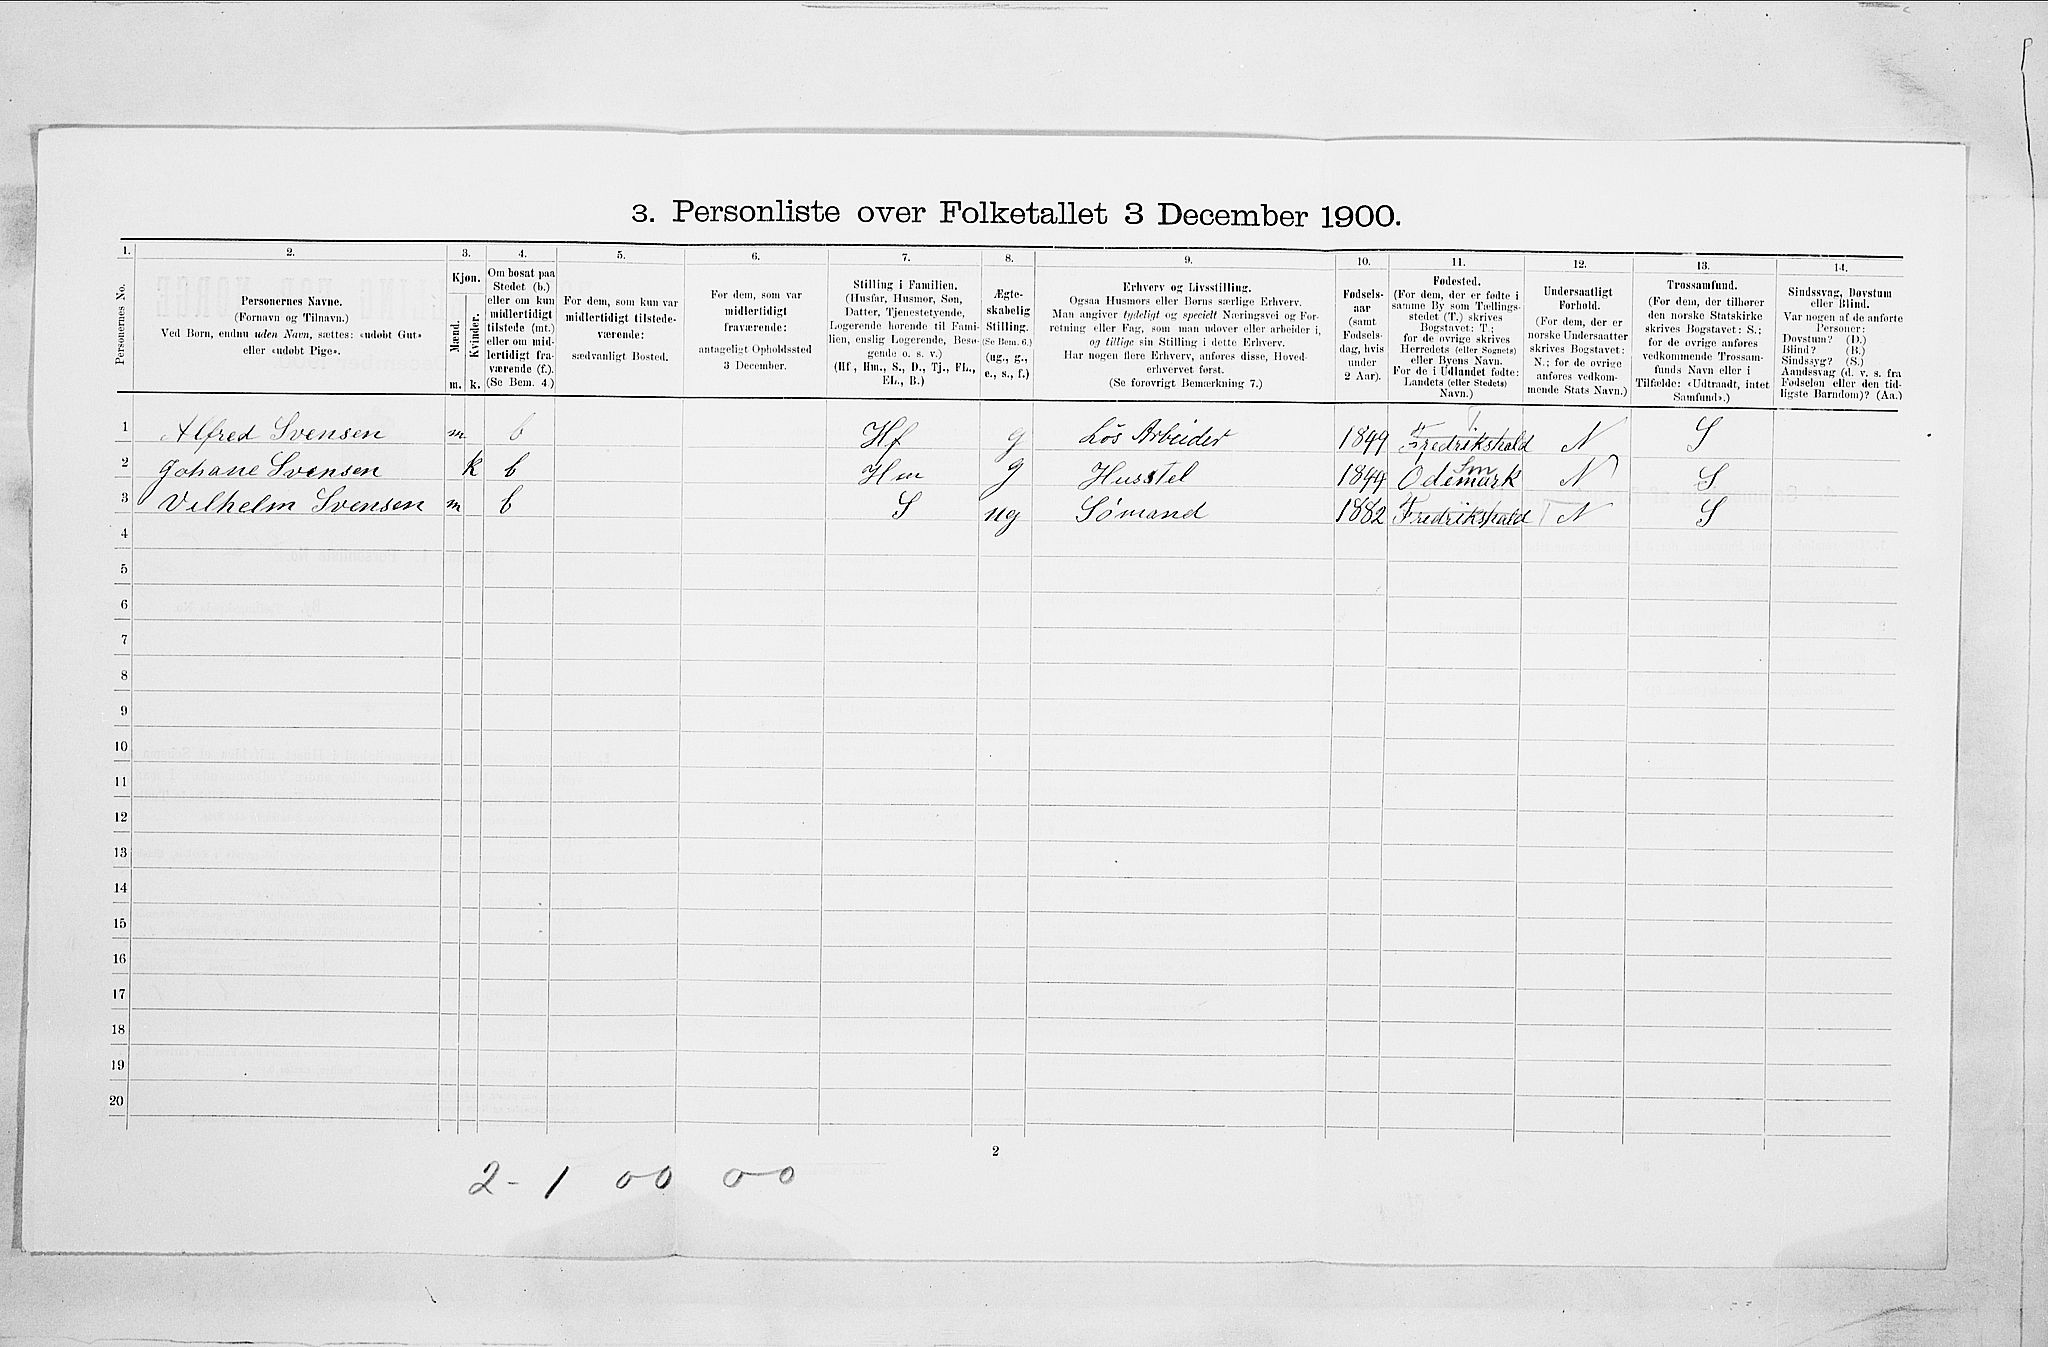 3. Personliste over Folketallet 3 December 1900.
1. 2. 3. 4. 5. 6. 7. 8. 9. 10. 11. 12. 13. 14.
Personernes No.
Personernes Navne.
(Fornavn og Tilnavn.)
Ved Børn, endnu uden Navn, sættes: «udøbt Gut»
eller «udøbt Pige».
Kjøn.
Mænd.
Kvinder.
m. k.
Om bosat paa
Stedet (b.)
eller om kun
midlertidigt
tilstede (mt.)
eller om mid-
lertidigt fra-
værende (f.).
(Se Bem. 4.)
For dem, som kun var
midlertidigt tilstede-
værende:
sædvanligt Bosted.
For dem, som var
midlertidigt
fraværende:
antageligt Opholdssted
3 December.
Stilling i Familien.
(Husfar, Husmor, Søn,
Datter, Tjenestetyende,
Logerende hørende til Fami-
lien, enslig Logerende, Besø-
gende o. s. v.)
(Hf., Hm., S., D., Tj., FL.,
EL., B.)
Ægte-
skabelig
Stilling.
(Se Bem. 6.)
(ug., g.,
e., s., f.)
Erhverv og Livsstilling.
Ogsaa Husmors eller Børns særlige Erhverv.
Man angiver tydeligt og specielt Næringsvei og For-
retning eller Fag, som man udøver eller arbeider i,
og tillige sin Stilling i dette Erhverv.
Har nogen flere Erhverv, anføres disse, Hoved-
erhvervet først.
(Se forøvrigt Bemærkning 7.)
Fødsels-
aar
(samt
Fødsels-
dag, hvis
under
2 Aar).
Fødested.
(For dem, der er fødte i
samme By som Tællings-
stedet (T.) skrives
Bogstavet: T.;
for de øvrige skrives
Herredets (eller Sognets)
eller Byens Navn.
For de i Udlandet fødte:
Landets (eller Stedets)
Navn.)
Undersaatligt
Forhold.
(For dem, der er
norske Undersaatter
skrives Bogstavet:
N.; for de øvrige
anføres vedkom-
mende Stats Navn.)
Trossamfund.
(For dem, der tilhører
den norske Statskirke
skrives Bogstavet: S.;
for de øvrige anføres
vedkommende Trossam-
funds Navn eller i
Tilfælde: «Udtraadt, intet
Samfund».)
Sindssvag, Døvstum
eller Blind.
Var nogen af de anførte
Personer:
Døvstum? (D.)
Blind? (B.)
Sindssyg? (S.)
Aandssvag (d. v. s. fra
Fødselen eller den tid-
ligste Barndom)? (Aa.)
T
1 Alfred Svensen m b Hf g Lös Arbeider 1849 Fredrikshald N S
Sm
2 Johane Svensen k b Hm g Husstel Odemark N S
3 Vilhelm Svensen m b S ug Sømand 1882 Fredrikshald T N S
4
5
6
7
8
9
10
11
12
13
14
15
16
17
18
19
20
2
2 - 1 00 00